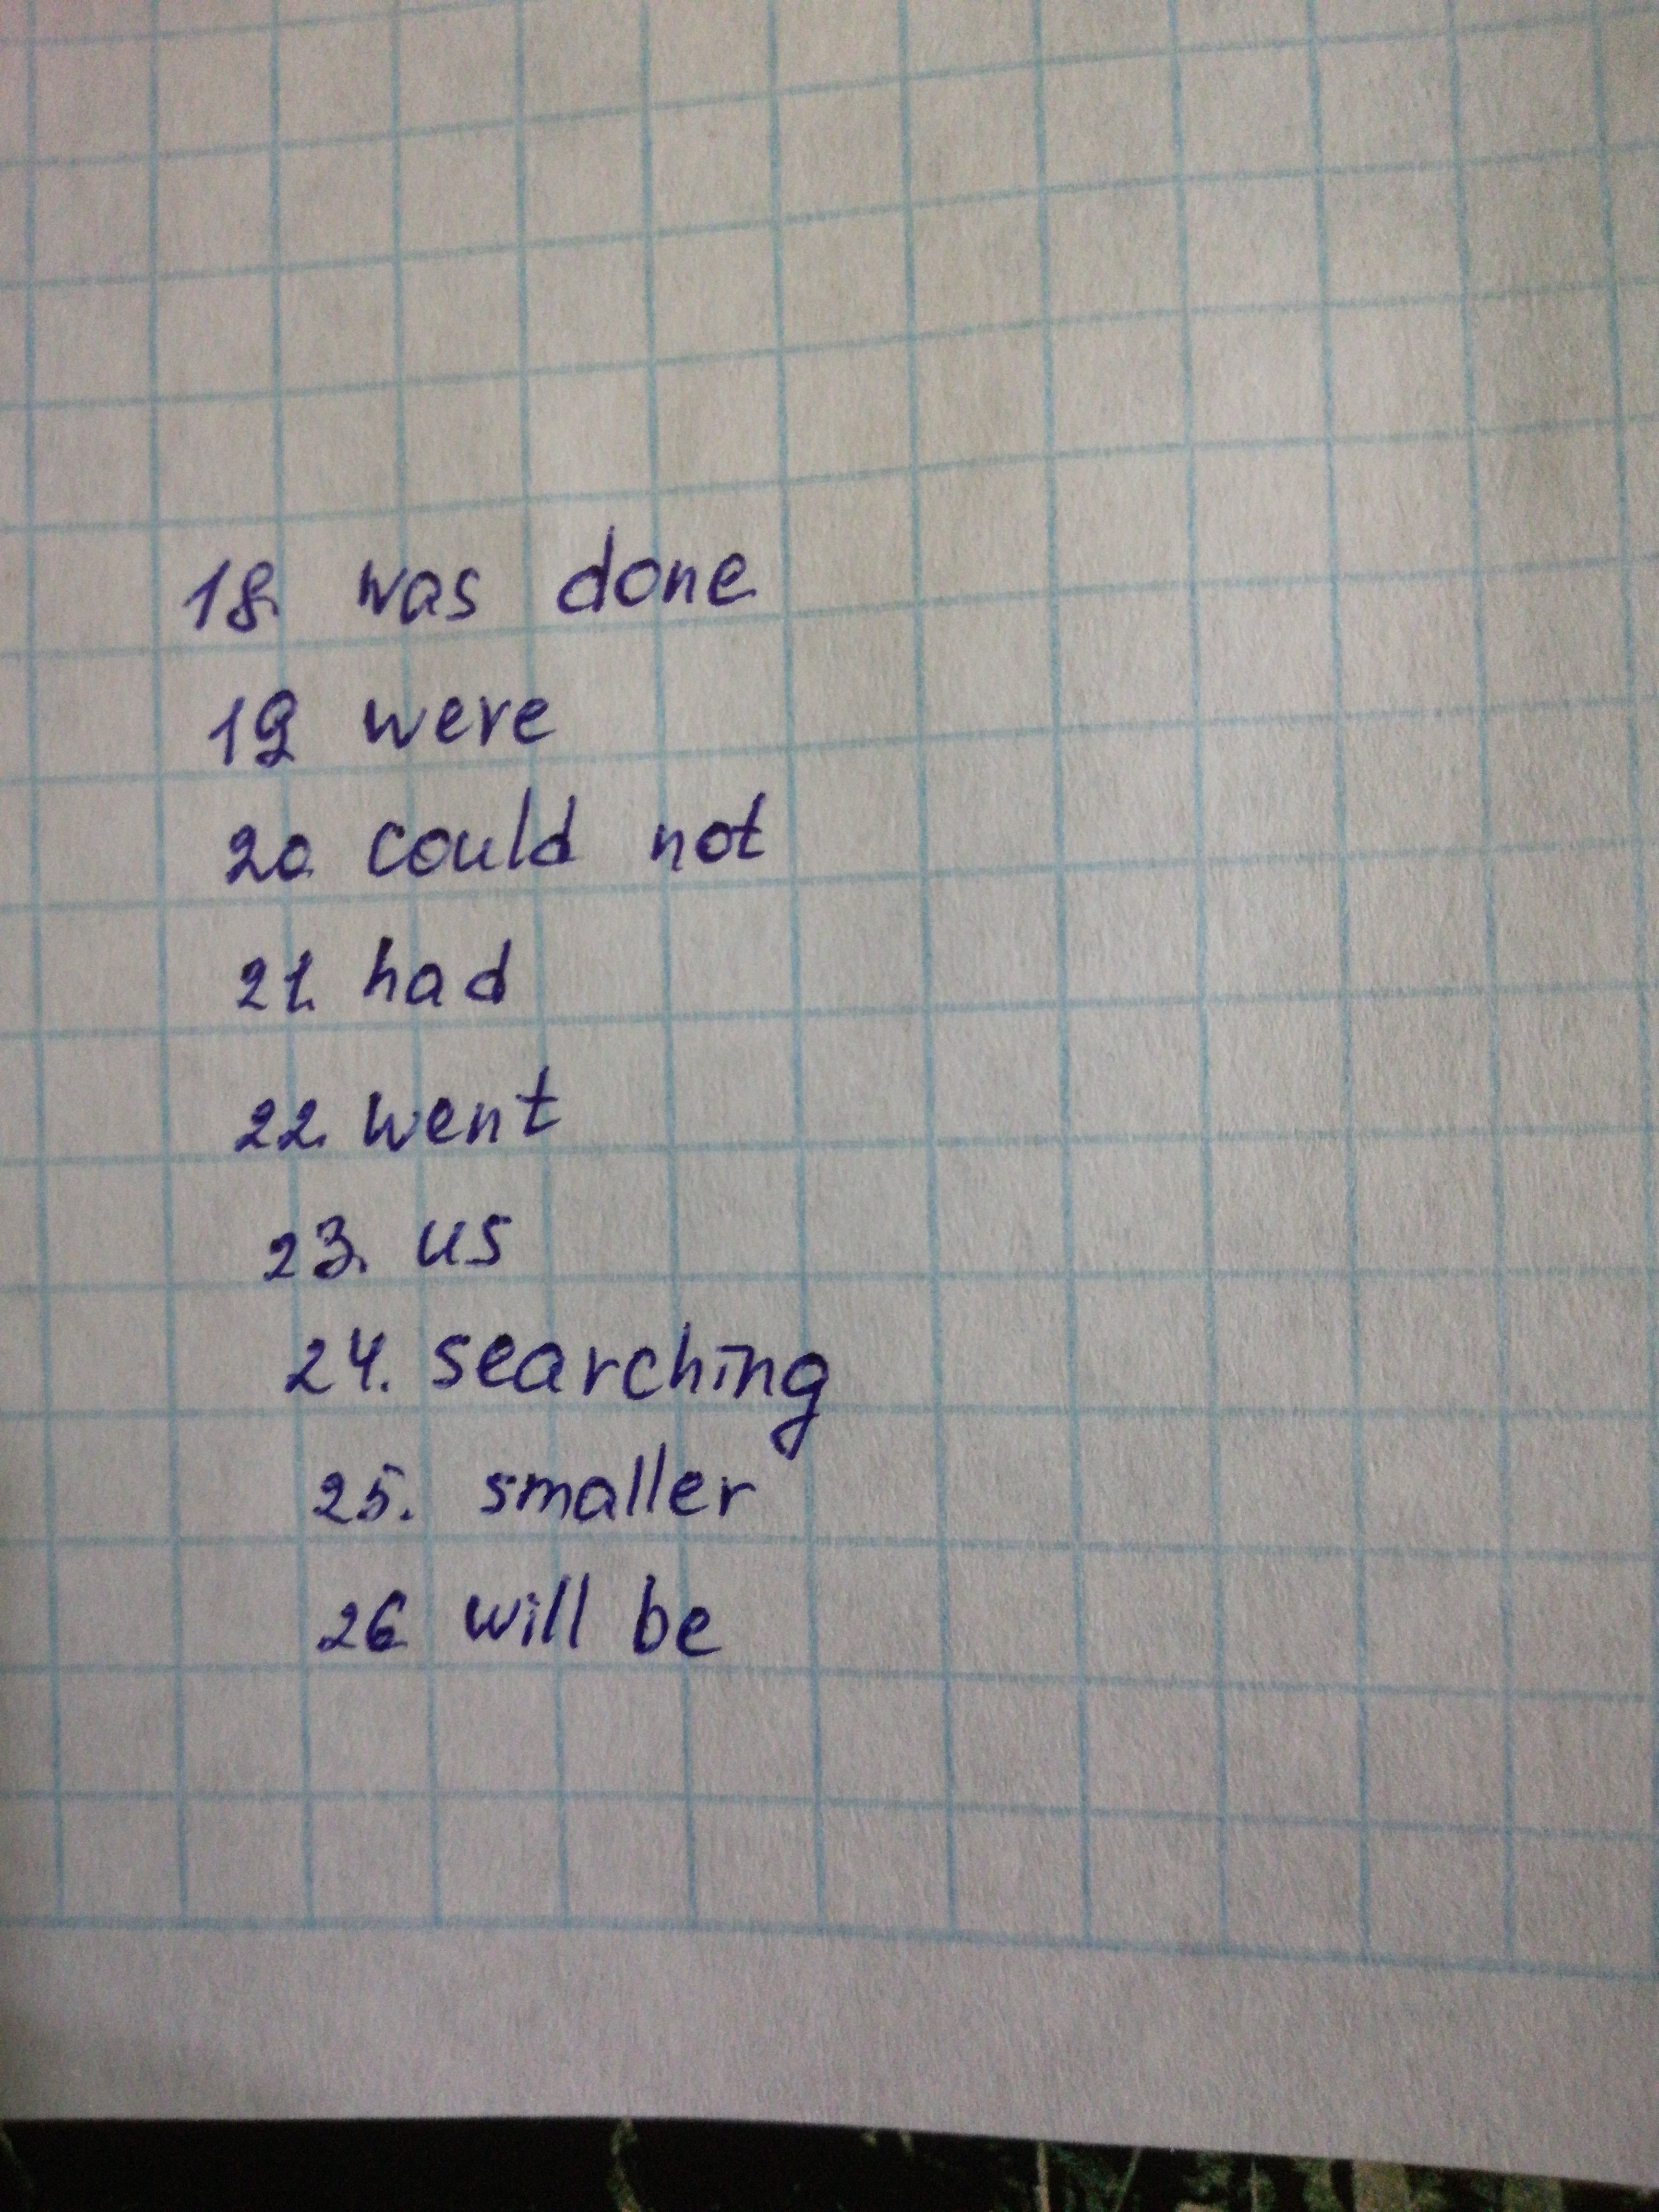 18. was done
19 were
20. could not
21. had
22. went
23. us
24. searching
25. smaller
26 will be